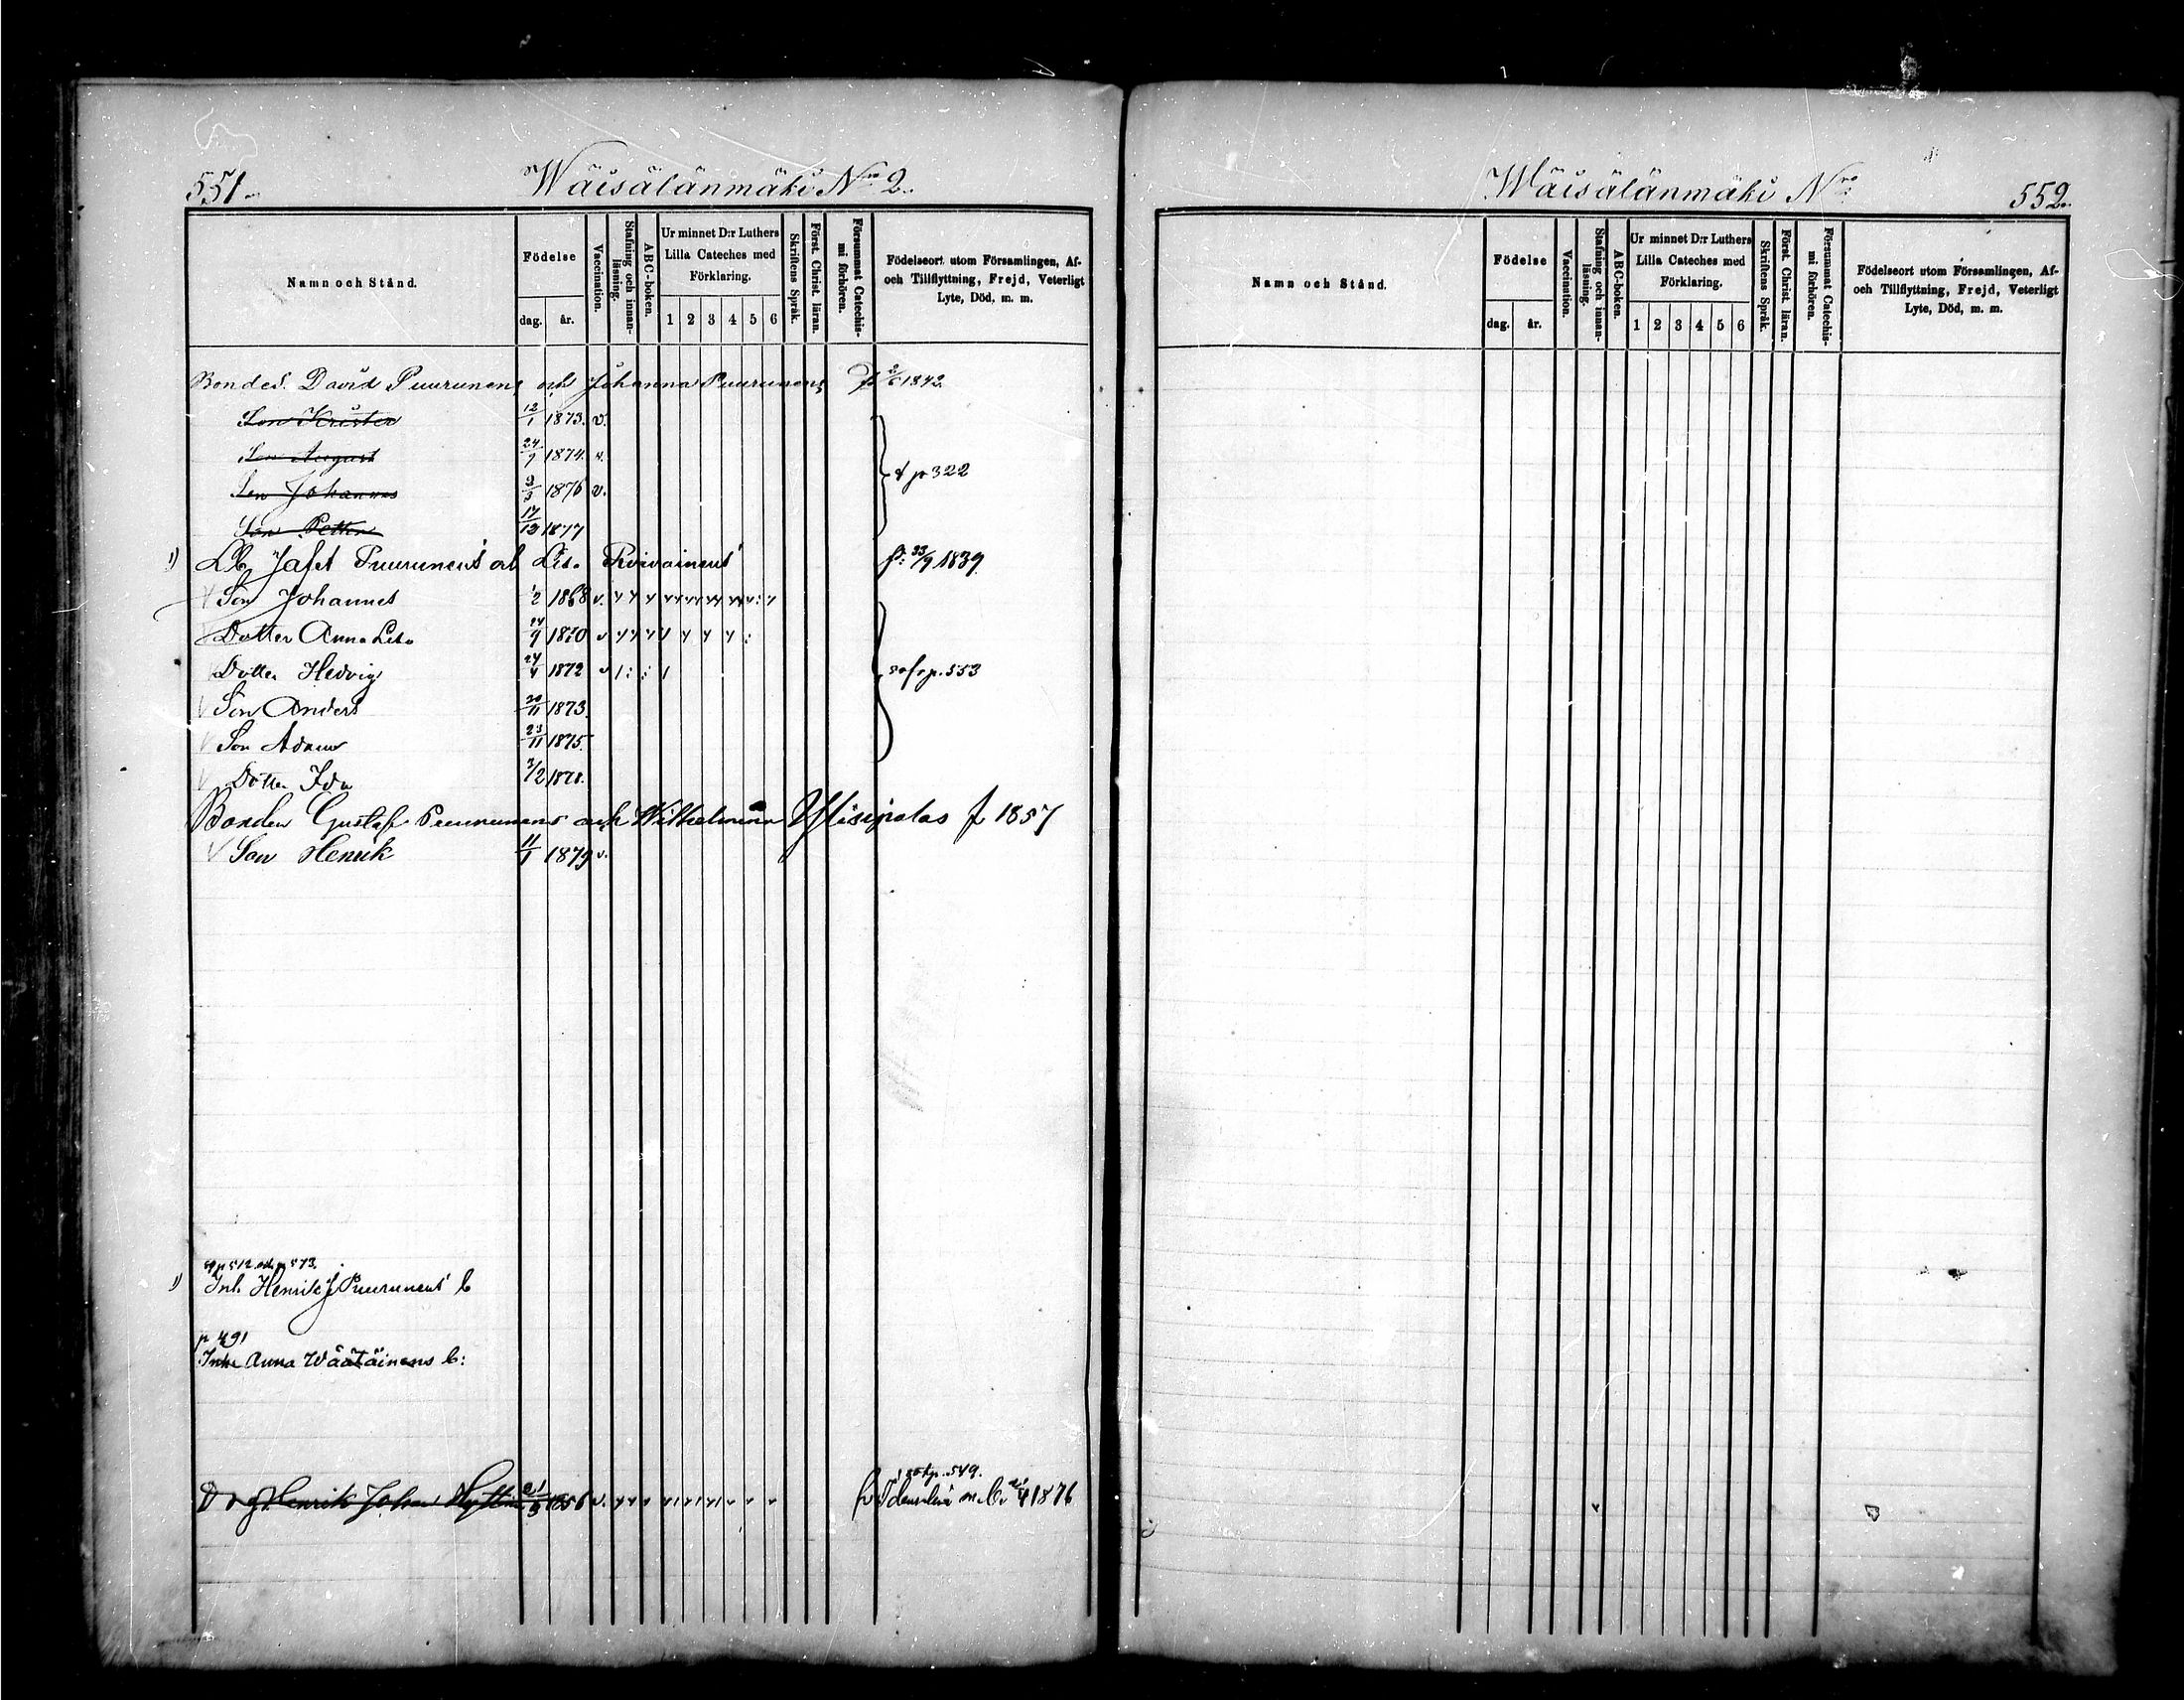 551. Wäisälänmäki Nro 2.
Namn och Stånd.
Födelse
dag. år.
Vaccination.
Stafning och innan-
läsning.
ABC-boken.
Ur minnet D:r Luthers
Lilla Cateches med
Förklaring.
1 2 3 4 5 6
Skriftens Språk.
Först. Christ. läran.
Försummat Catechis-
mi förhören.
Födelseort utom Församlingen, Af-
och Tillflyttning, Frejd, Veterligt
Lyte, Död, m. m.
Bondes. David Puurunens och Johanna Puurunens 1842.
Son Krister 12/1 1873. v.
Son August 1874. v.
Son Johannes 1876 v.
Son Petter 1877
p 322
1) Jafet Puurunens och Lisa Roivainens 1839.
Son Johannes 1/2 1868 v.
Dotter Anna Lisa 24/9 1870 v
Dotter Hedvig 24/4 1872 v
Son Anders 20/11 1873.
Son Adam 23/11 1875.
Dotter Ida 3/2 1878.
p. 553
Bonden Gustaf Puurunens och Wilhelmina f 1857
Son Henrik 11/1 1879 v.
p 512 och p 573.
1) Inh. Henrik J Puurunens b
p 491
Inh. Anna Wäätäinens b:
p. 549.
Drg Henrik Johan 21/3 1856 v. 1876
Wäisälänmäki Nro 552.
Namn och Stånd.
Födelse
dag. år.
Vaccination.
Stafning och innan-
läsning.
ABC-boken.
Ur minnet D:r Luthers
Lilla Cateches med
Förklaring.
1 2 3 4 5 6
Skriftens Språk.
Först. Christ. läran.
Försummat Catechis-
mi förhören.
Födelseort utom Församlingen, Af-
och Tillflyttning, Frejd, Veterligt
Lyte, Död, m. m.